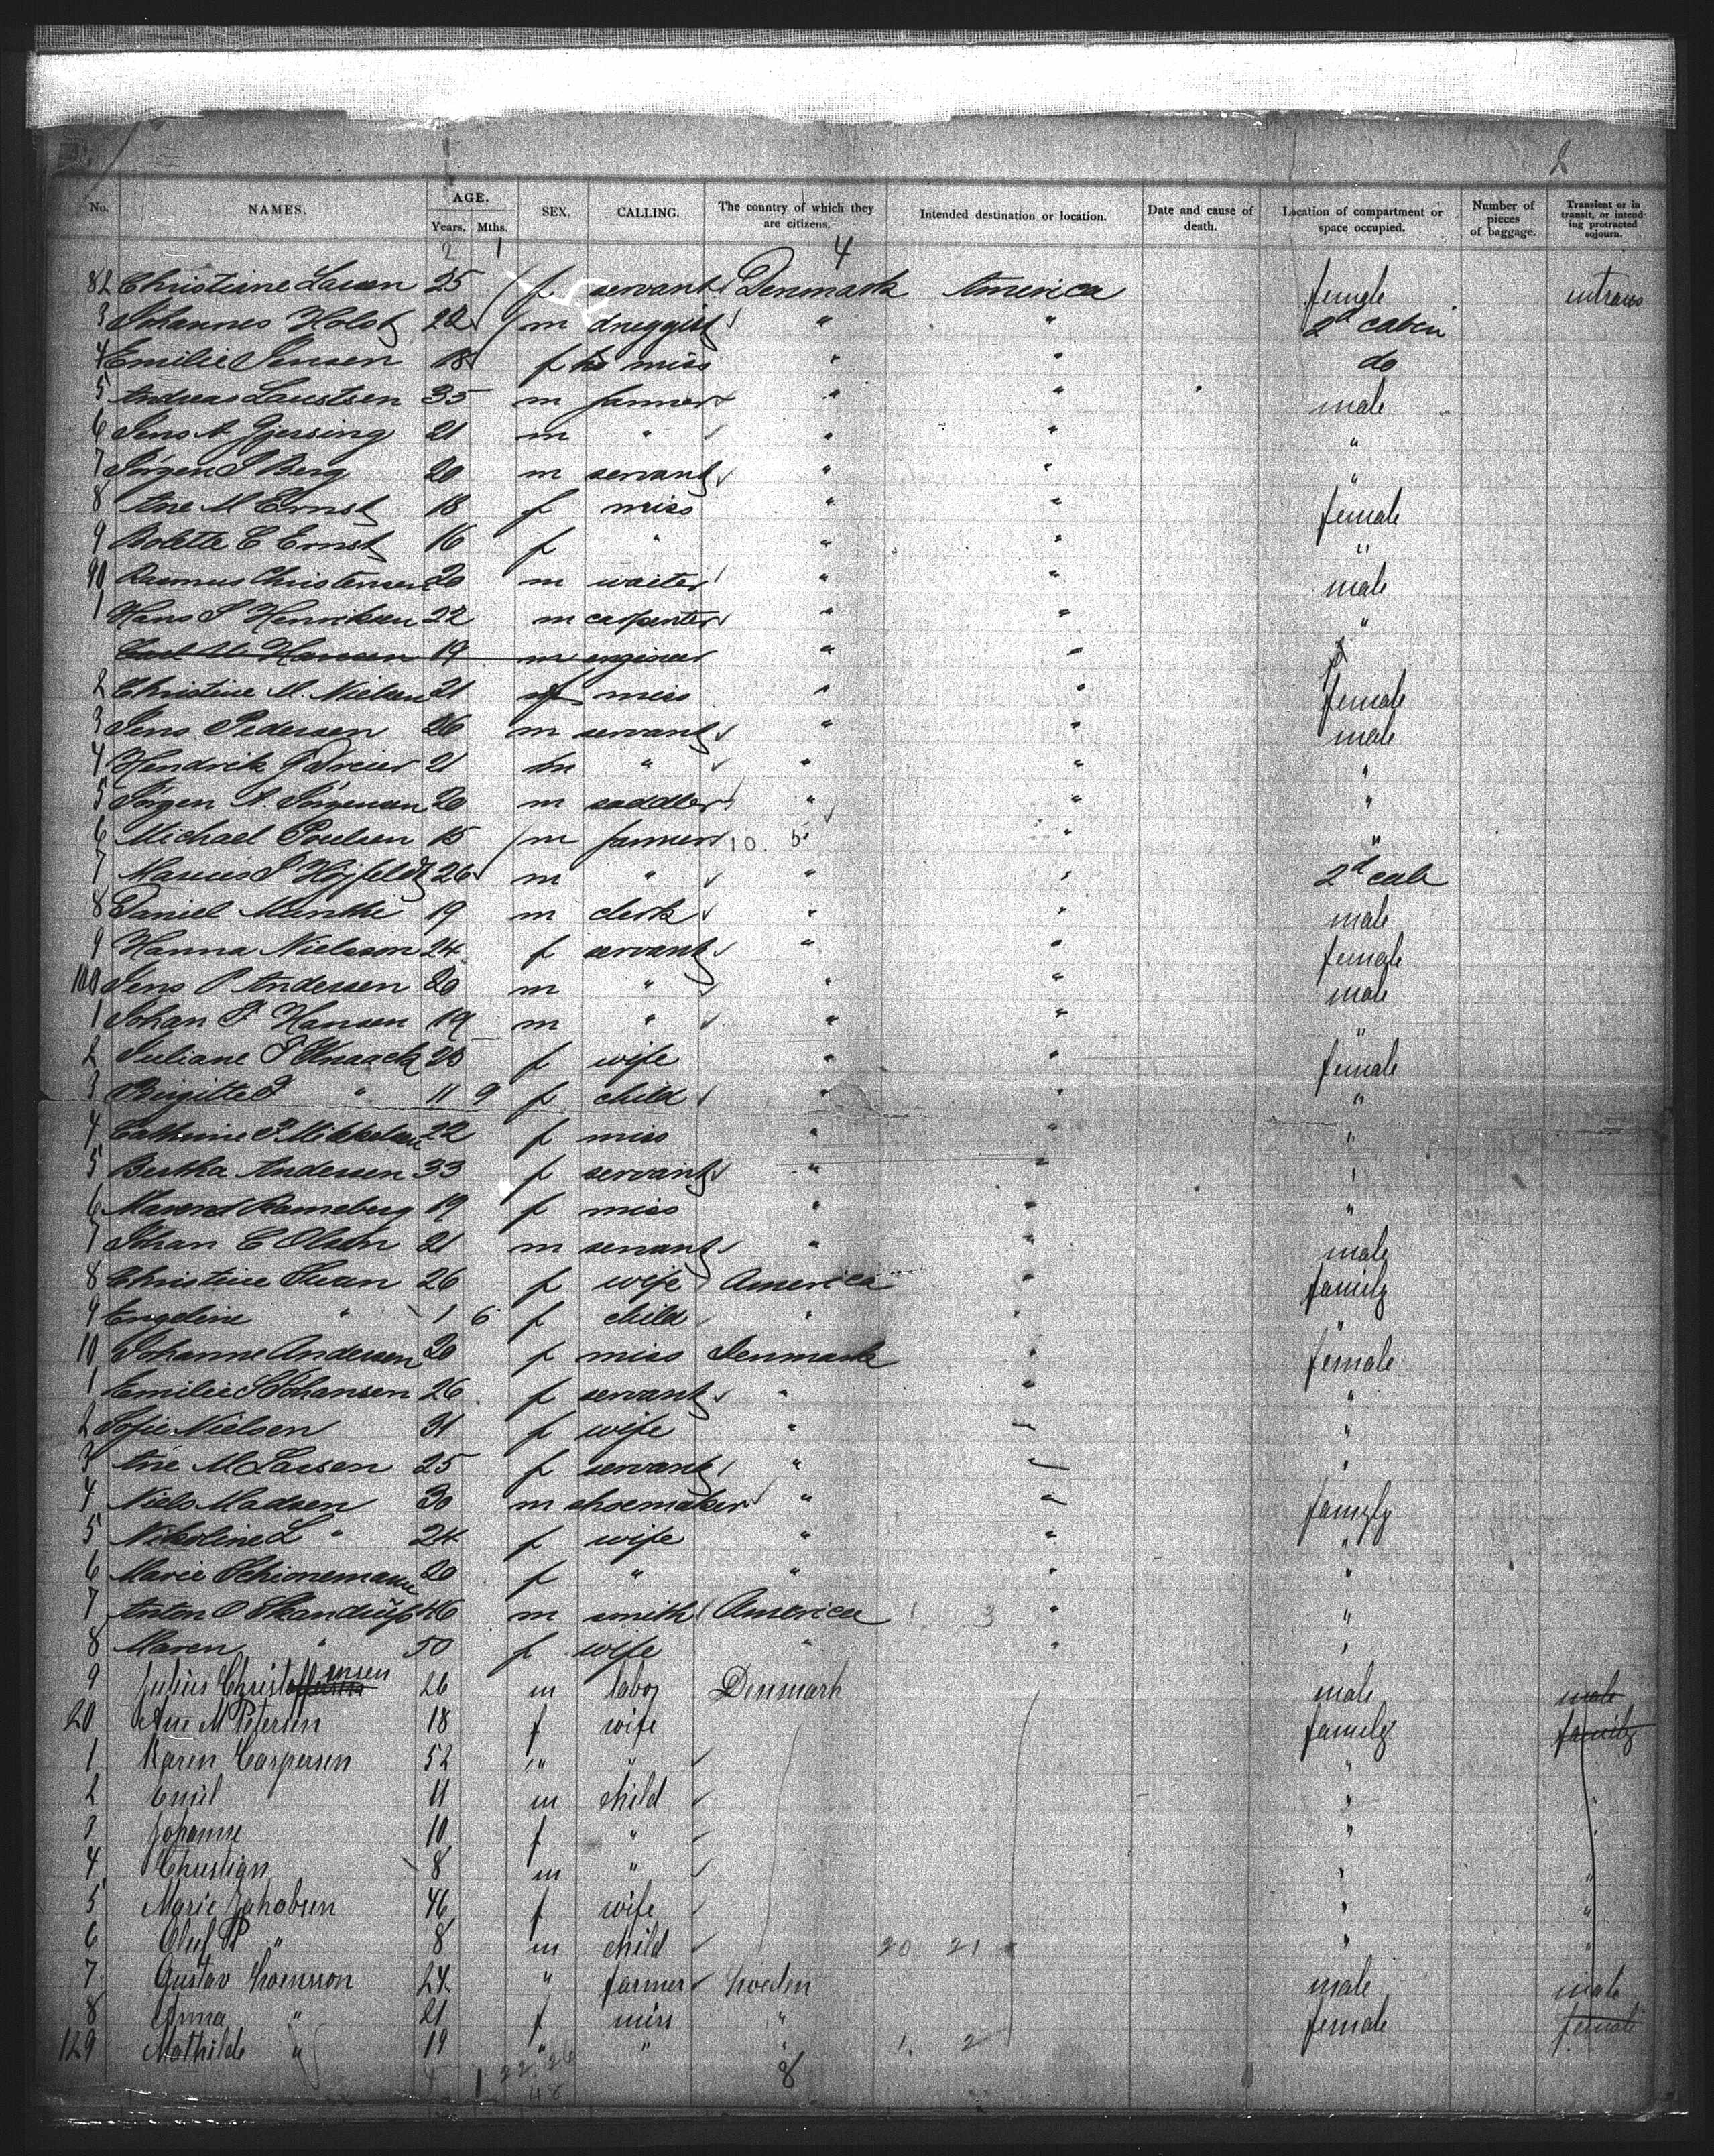 2
No. NAMES. AGE. Years. Mths. SEX. CALLING. The country of which they are citizens. Intended destination or location. Date and cause of death. Location of compartment or space occupied. Number of pieces of baggage. Transient or in transit, or intending protracted sojourn.
2 1 4
82 Christine Lauen 25 f servant Denmark America female intrans
3 Johannes Holst 22 m druggist " " 2d cabin
4 Emilie Jensen 18 f miss " " do
5 Andreas Laustsen 35 m farmer " " male
6 Jens A Gjersing 21 m " " " "
7 Jörgen S Berg 20 m servant " " "
8 Ane M Ernst 18 f miss " " female
9 Bolette C Ernst 16 f " " " "
90 Rasmus Christensen 20 m waiter " " male
1 Hans S Henriksen 22 m carpenter " " "
Carl W Hansen 19 m engineer " "
2 Christine M. Nielsen 21 f miss " " female
3 Jens Pedersen 26 m servant " " male
4 Hendrik J Dreier 21 m " " " "
5 Jörgen A. Jörgensen 20 m saddler " " "
6 Michael Poulsen 15 m farmer 10. 5 " "
7 Marius P Höjfeldt 26 m " " " 2d cab
8 Daniel Munthe 19 m clerk " " male
9 Hanna Nielsson 24 f servant " " female
100 Jens P Andersen 20 m " " " male
1 Johan P Hansen 19 m " " " "
2 Juliane P Knaack 25 f wife " " female
3 Birgitte P " 11 9 f child " " "
4 Cathrine P. Mikkelsen 22 f miss " " "
5 Bertha Andersen 33 f servant " " "
6 Maren Ranneberg 19 f miss " " "
7 Johan C Olsen 21 m servant " " male
8 Christine Swan 26 f wife America " family
9 Engeline " 1 6 f child " " "
10 Johanne Andersen 20 f miss Denmark " female
1 Emilie S Johansen 26 f servant " " "
2 Sofie Nielsen 31 f wife " "
3 Ane M Larsen 25 f servant " "
4 Niels Madsen 30 m shoemaker " " family
5 Nikoline L " 24 f wife " " "
6 Marie Schionemann 20 f " " " "
7 Anton O Skandrüp 46 m smith America 1 3 " "
8 Maren " 50 f wife " " "
9 Julius Christensen 26 m labor Denmark male male
20 Ane M Petersen 18 f wife family family
1 Karen Caspersen 52 " " "
2 Emil 11 m child " "
3 Johanne 10 f " "
4 Christian 8 m " " "
5 Marie Jakobsen 46 f wife " "
6 Oluf P " 8 m child 20 21 " "
7 Gustav Svensson 24 " farmer Sweden male male
8 Anna " 21 f miss " female female
129 Mathilde " 19 " " " 1. 2
4 1 22 26 8
48